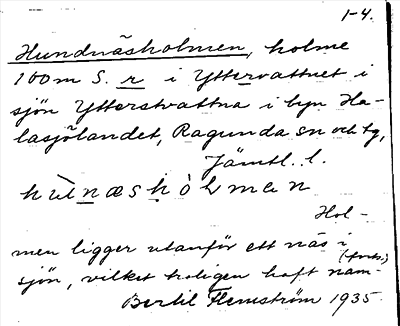 1-4.
Hundnäsholmen, holme
100 m S. r i Yttervattnet i
sjön Ytterstvattna i byn Ha-
lasjölandet, Ragunda sn och tg,
Jämtl. l.
Hol-
men ligger utanför ett näs i
(forts.)
sjön, vilket troligen haft nam-
Bertil Flemström 1935